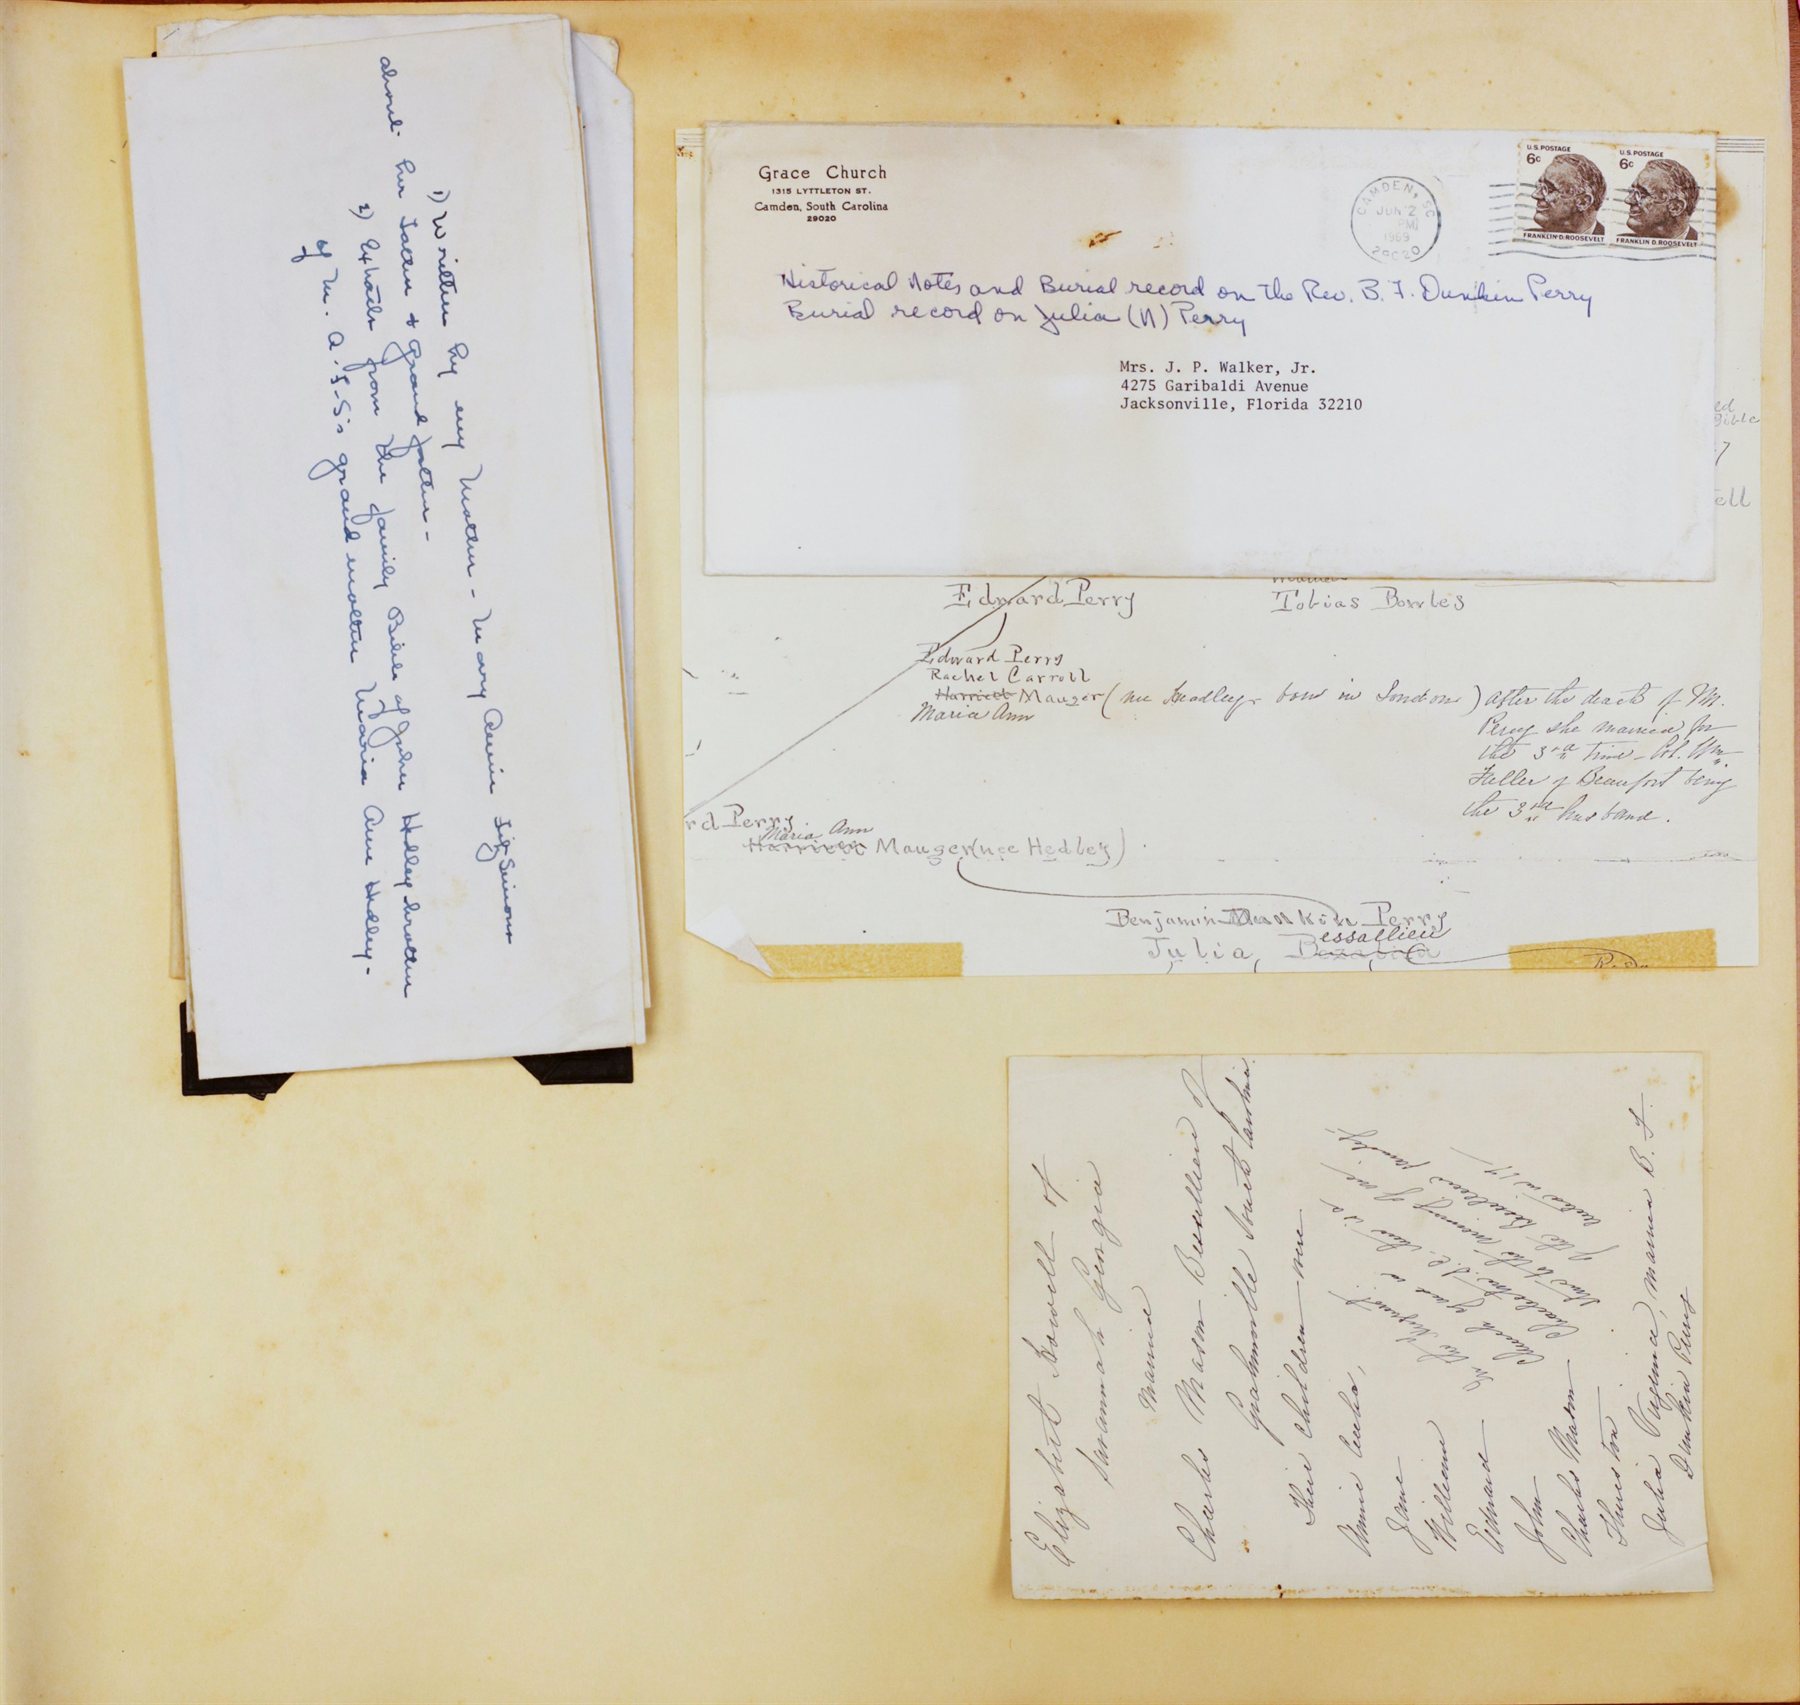 1) Written by my mother - Mary Annie LigSimons
about her father & grandfather -
2) Extracts from the family Bible of John Hedley brother
of M. A. L-S's grandmother Maria Ann Hedley -
Grace Church
1315 LYTTLETON ST.
Camden, South Carolina
29020
CAMDEN, SC
JUN 2
PM
1969
U.S. POSTAGE
6c
FRANKLIN D. ROOSEVELT
U.S. POSTAGE
6c
FRANKLIN D. ROOSEVELT
Historical Notes and Burial record on the Rev. B. F. Dunkin Perry
Burial record on Julia (N) Perry
Mrs. J. P. Walker, Jr.
4275 Garibaldi Avenue
Jacksonville, Florida 32210
ed
Bible
7
ell
Edward Perry
Tobias Bowles
Edward Perry
Rachel Carroll
Harriet Mauger (nee Headley born in London) after the death of Mr.
Maria Ann
Perry she married for
the 3rd time - Col. Wm.
Fuller of Beaufort being
the 3rd husband.
rd Perry
Maria Ann
Harriet Mauger (nee Hedley)
Benjamin Dunkin Perry
essellieu
Julia,
Elizabeth Bowell of
Savannah Georgia
Married
Charles Mason Bessellieu of
Grahamville South Carolina
Their children were
Annie Leslie,
Jane
Williame
Edward
John
Charles Mason
Thurston
Julia Virginia, married B. F.
Dunkin Perry
In the Huguenot
Church yard in
Charleston, S.C. there is a
of the Bessellieu family